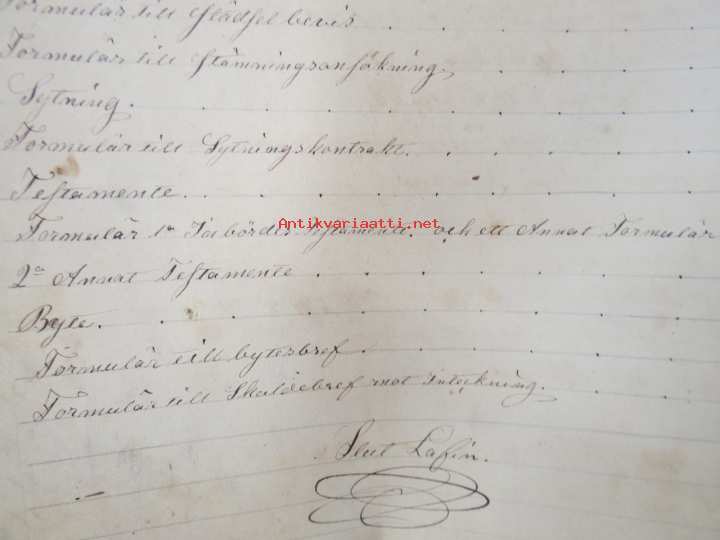 Formulär till städsel bevis . . . . . .
Formulär till stämningsansökning, . . . . .
Sytning. . . . . . . . . .
Formulär till Sytningskontrakt. . . . . . .
Testamente. . . . . . . . .
Formulär 1a Inbördes Testamente. och ett Annat Formulär
2a Annat Testamente . . . . . . .
Byte. . . . . . . . . .
Formulär till bytesbref . . . . . .
Formulär till Skuldebref mot Inteckning. . . .
Slut
Antikvariaatti.net